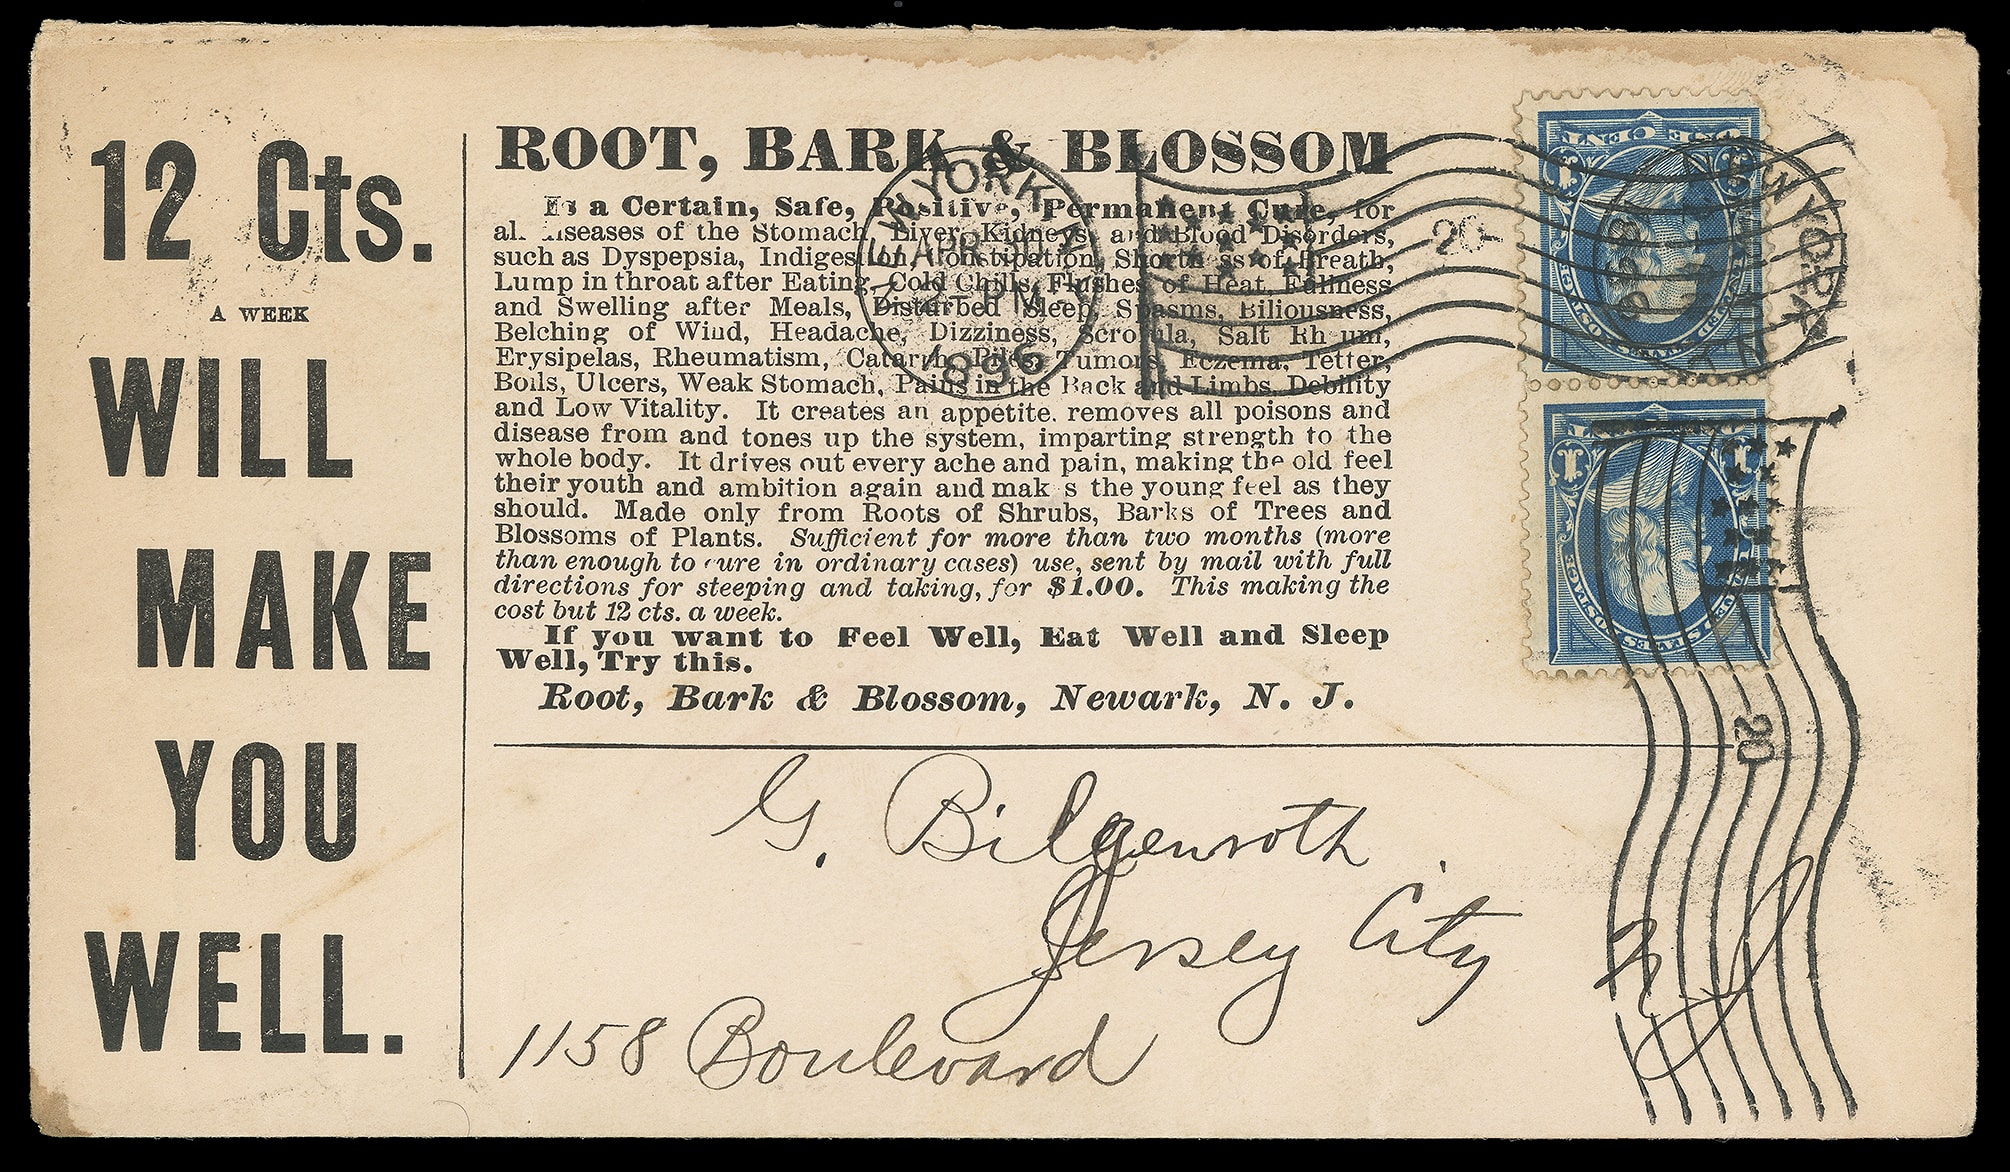 12 Cts.
A WEEK
WILL
MAKE
YOU
WELL.
ROOT, BARK & BLOSSOM
Is a Certain, Safe, Positive, Permanent Cure, for
all diseases of the Stomach, Liver, Kidneys, and Blood Disorders,
such as Dyspepsia, Indigestion, Constipation, Shortness of Breath,
Lump in throat after Eating, Cold Chills, Flushes of Heat, Fullness
and Swelling after Meals, Disturbed Sleep, Spasms, Biliousness,
Belching of Wind, Headache, Dizziness, Scrofula, Salt Rheum,
Erysipelas, Rheumatism, Catarrh, Piles, Tumors, Eczema, Tetter,
Boils, Ulcers, Weak Stomach, Pains in the Back and Limbs, Debility
and Low Vitality. It creates an appetite, removes all poisons and
disease from and tones up the system, imparting strength to the
whole body. It drives out every ache and pain, making the old feel
their youth and ambition again and makes the young feel as they
should. Made only from Roots of Shrubs, Barks of Trees and
Blossoms of Plants. Sufficient for more than two months (more
than enough to cure in ordinary cases) use, sent by mail with full
directions for steeping and taking, for $1.00. This making the
cost but 12 cts. a week.
If you want to Feel Well, Eat Well and Sleep
Well, Try this.
Root, Bark & Blossom, Newark, N. J.
NEW YORK, N.Y.
APR
PM
1896
20
ONE CENT
1 1
UNITED STATES POSTAGE
NEW YORK
ONE CENT
1 1
UNITED STATES POSTAGE
20
G. Bilgenroth
Jersey City
N J
1158 Boulevard